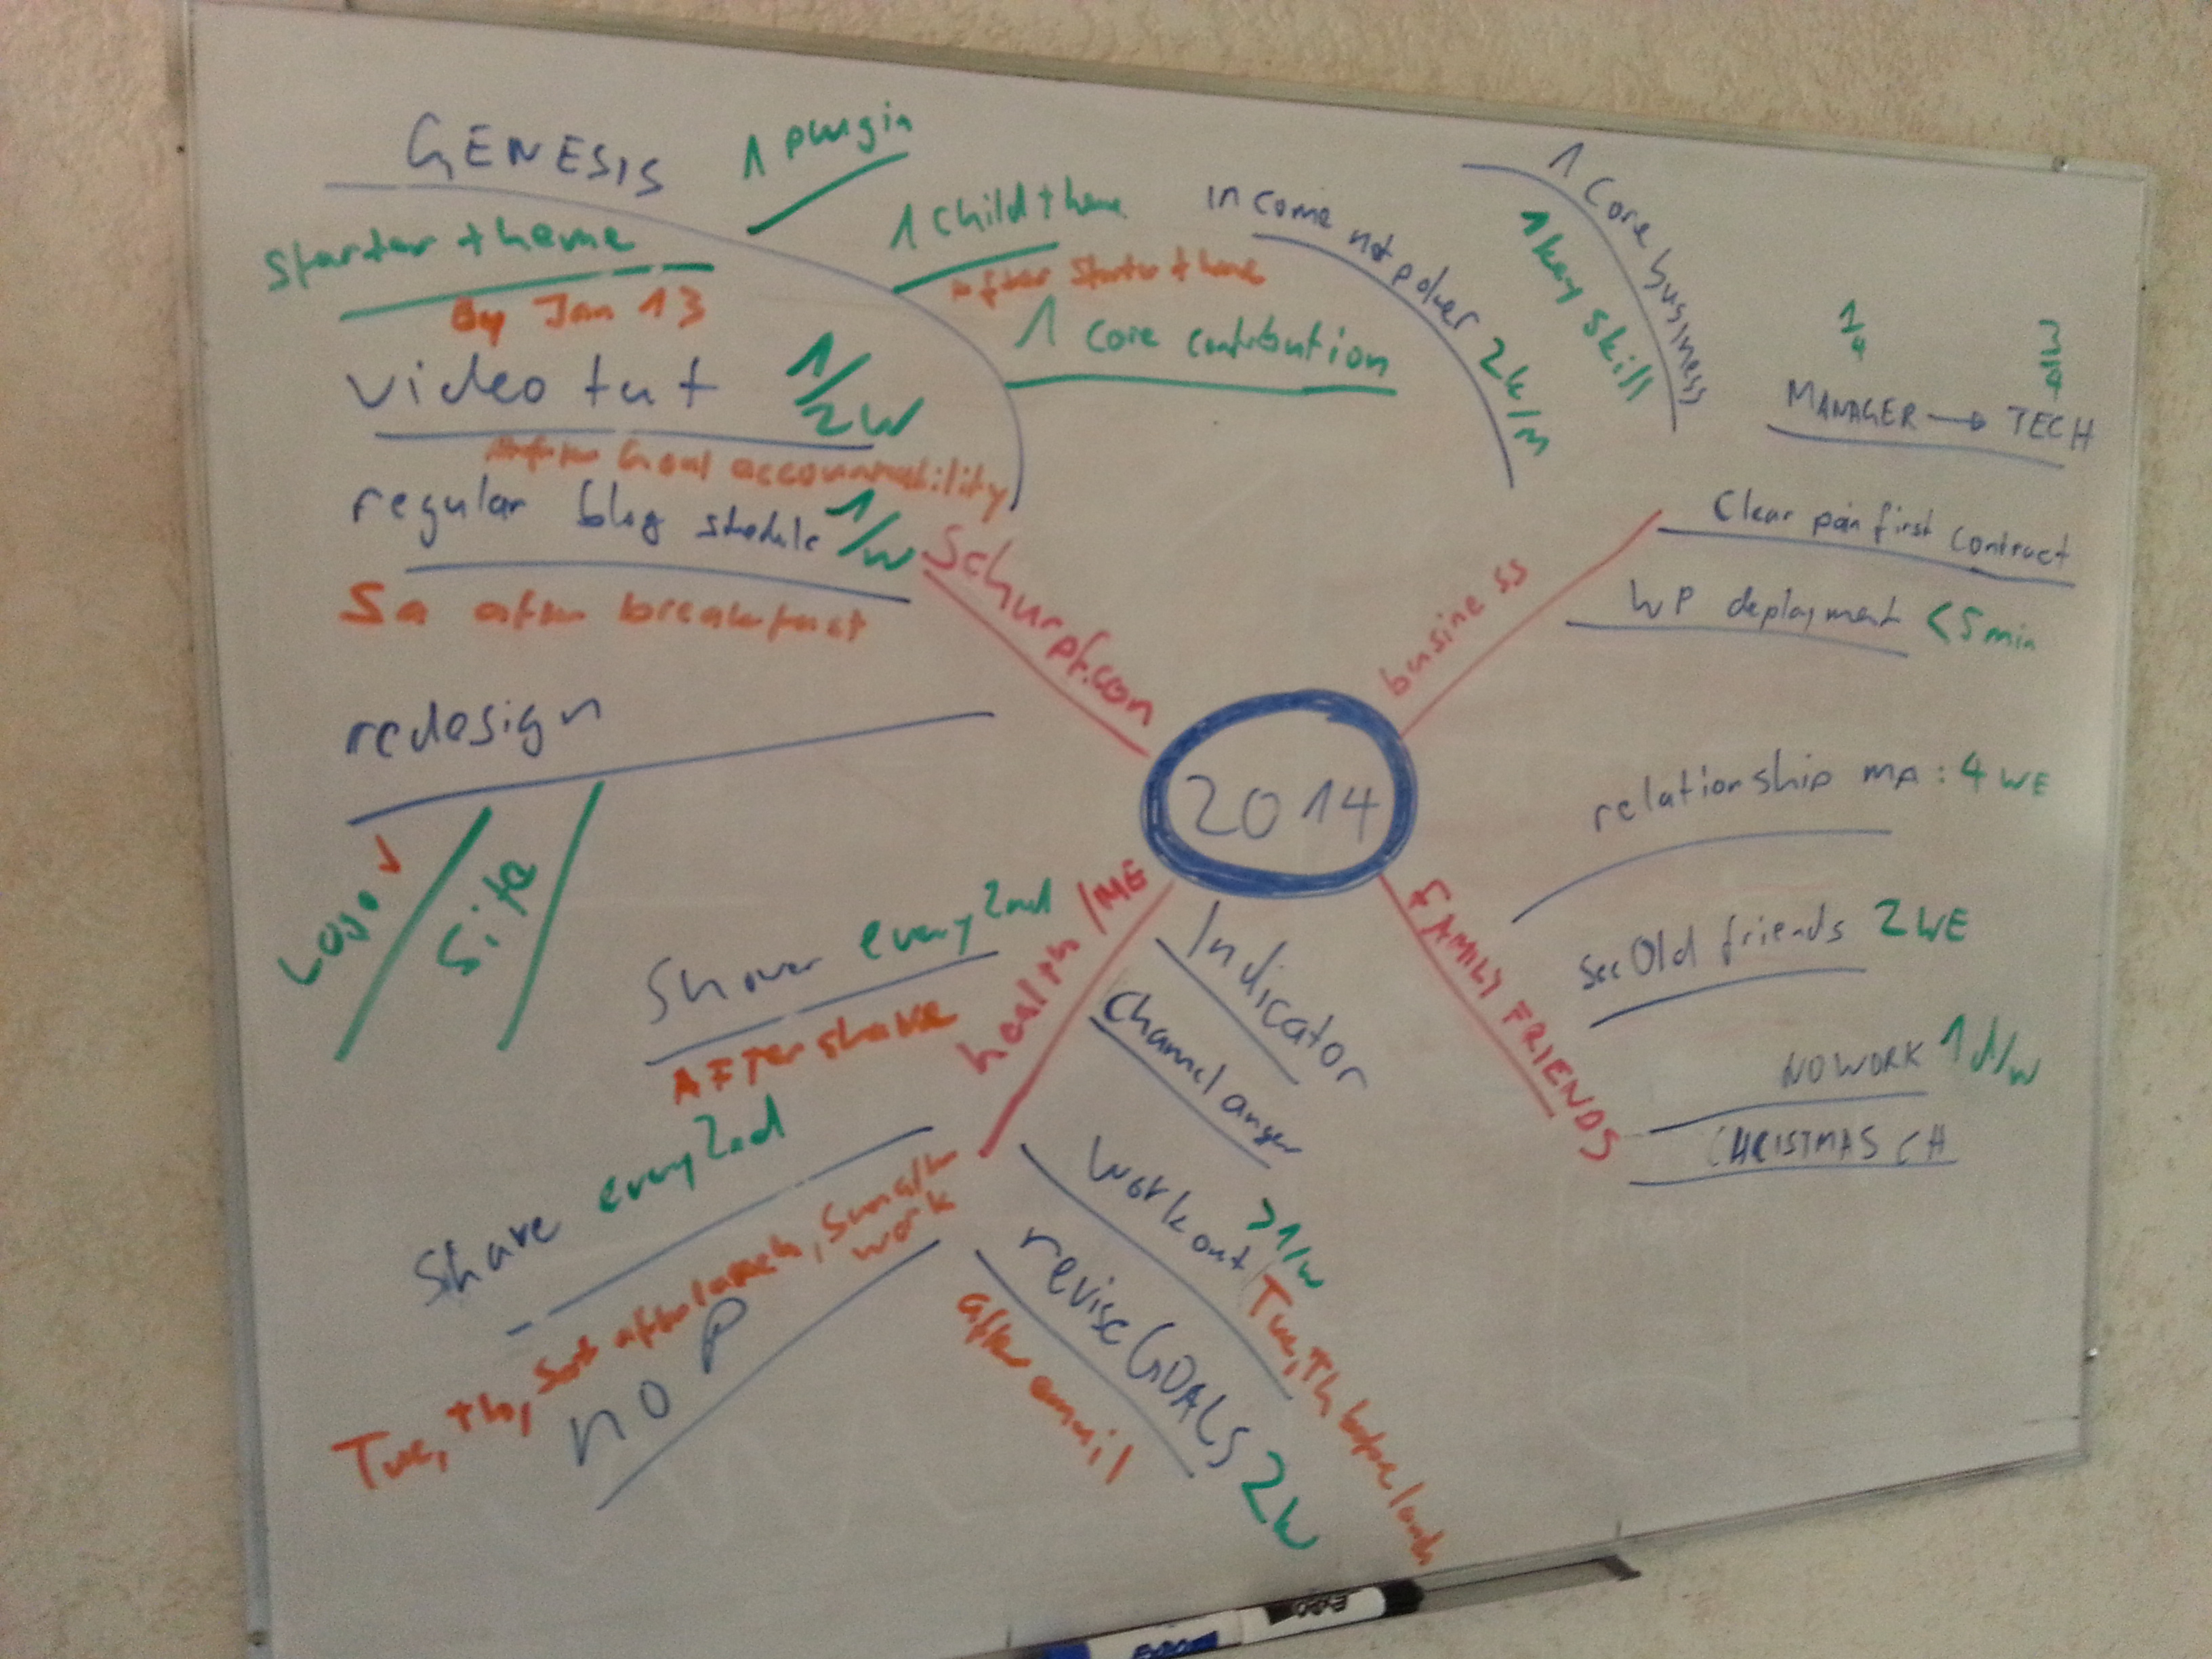 GENESIS
1 plugin
starter theme
By Jan 13
1 child theme
after starter theme
1 core contribution
video tut 1/2W
Goal accountability
regular blog shedule 1/W
Sa after breakfast
Schurpf.com
redesign
Logo
Site
income not polver 2k/m
1 Core business
1 key skill
1/4 3/4
MANAGER → TECH
business
Clear pain first contract
WP deployment <5min
2014
relationship MA: 4 WE
See Old friends 2 WE
NO WORK 1d/w
CHRISTMAS CH
FAMILY FRIENDS
health /ME
Shower every 2nd
AFTER shave
Shave every 2nd
Tue, Th, Sat after lunch, Sun after
work
no P
Indicator
Channel anger
Workout >1/w
Tue, Th before lunch
revise GOALS 2W
after email
EXPO